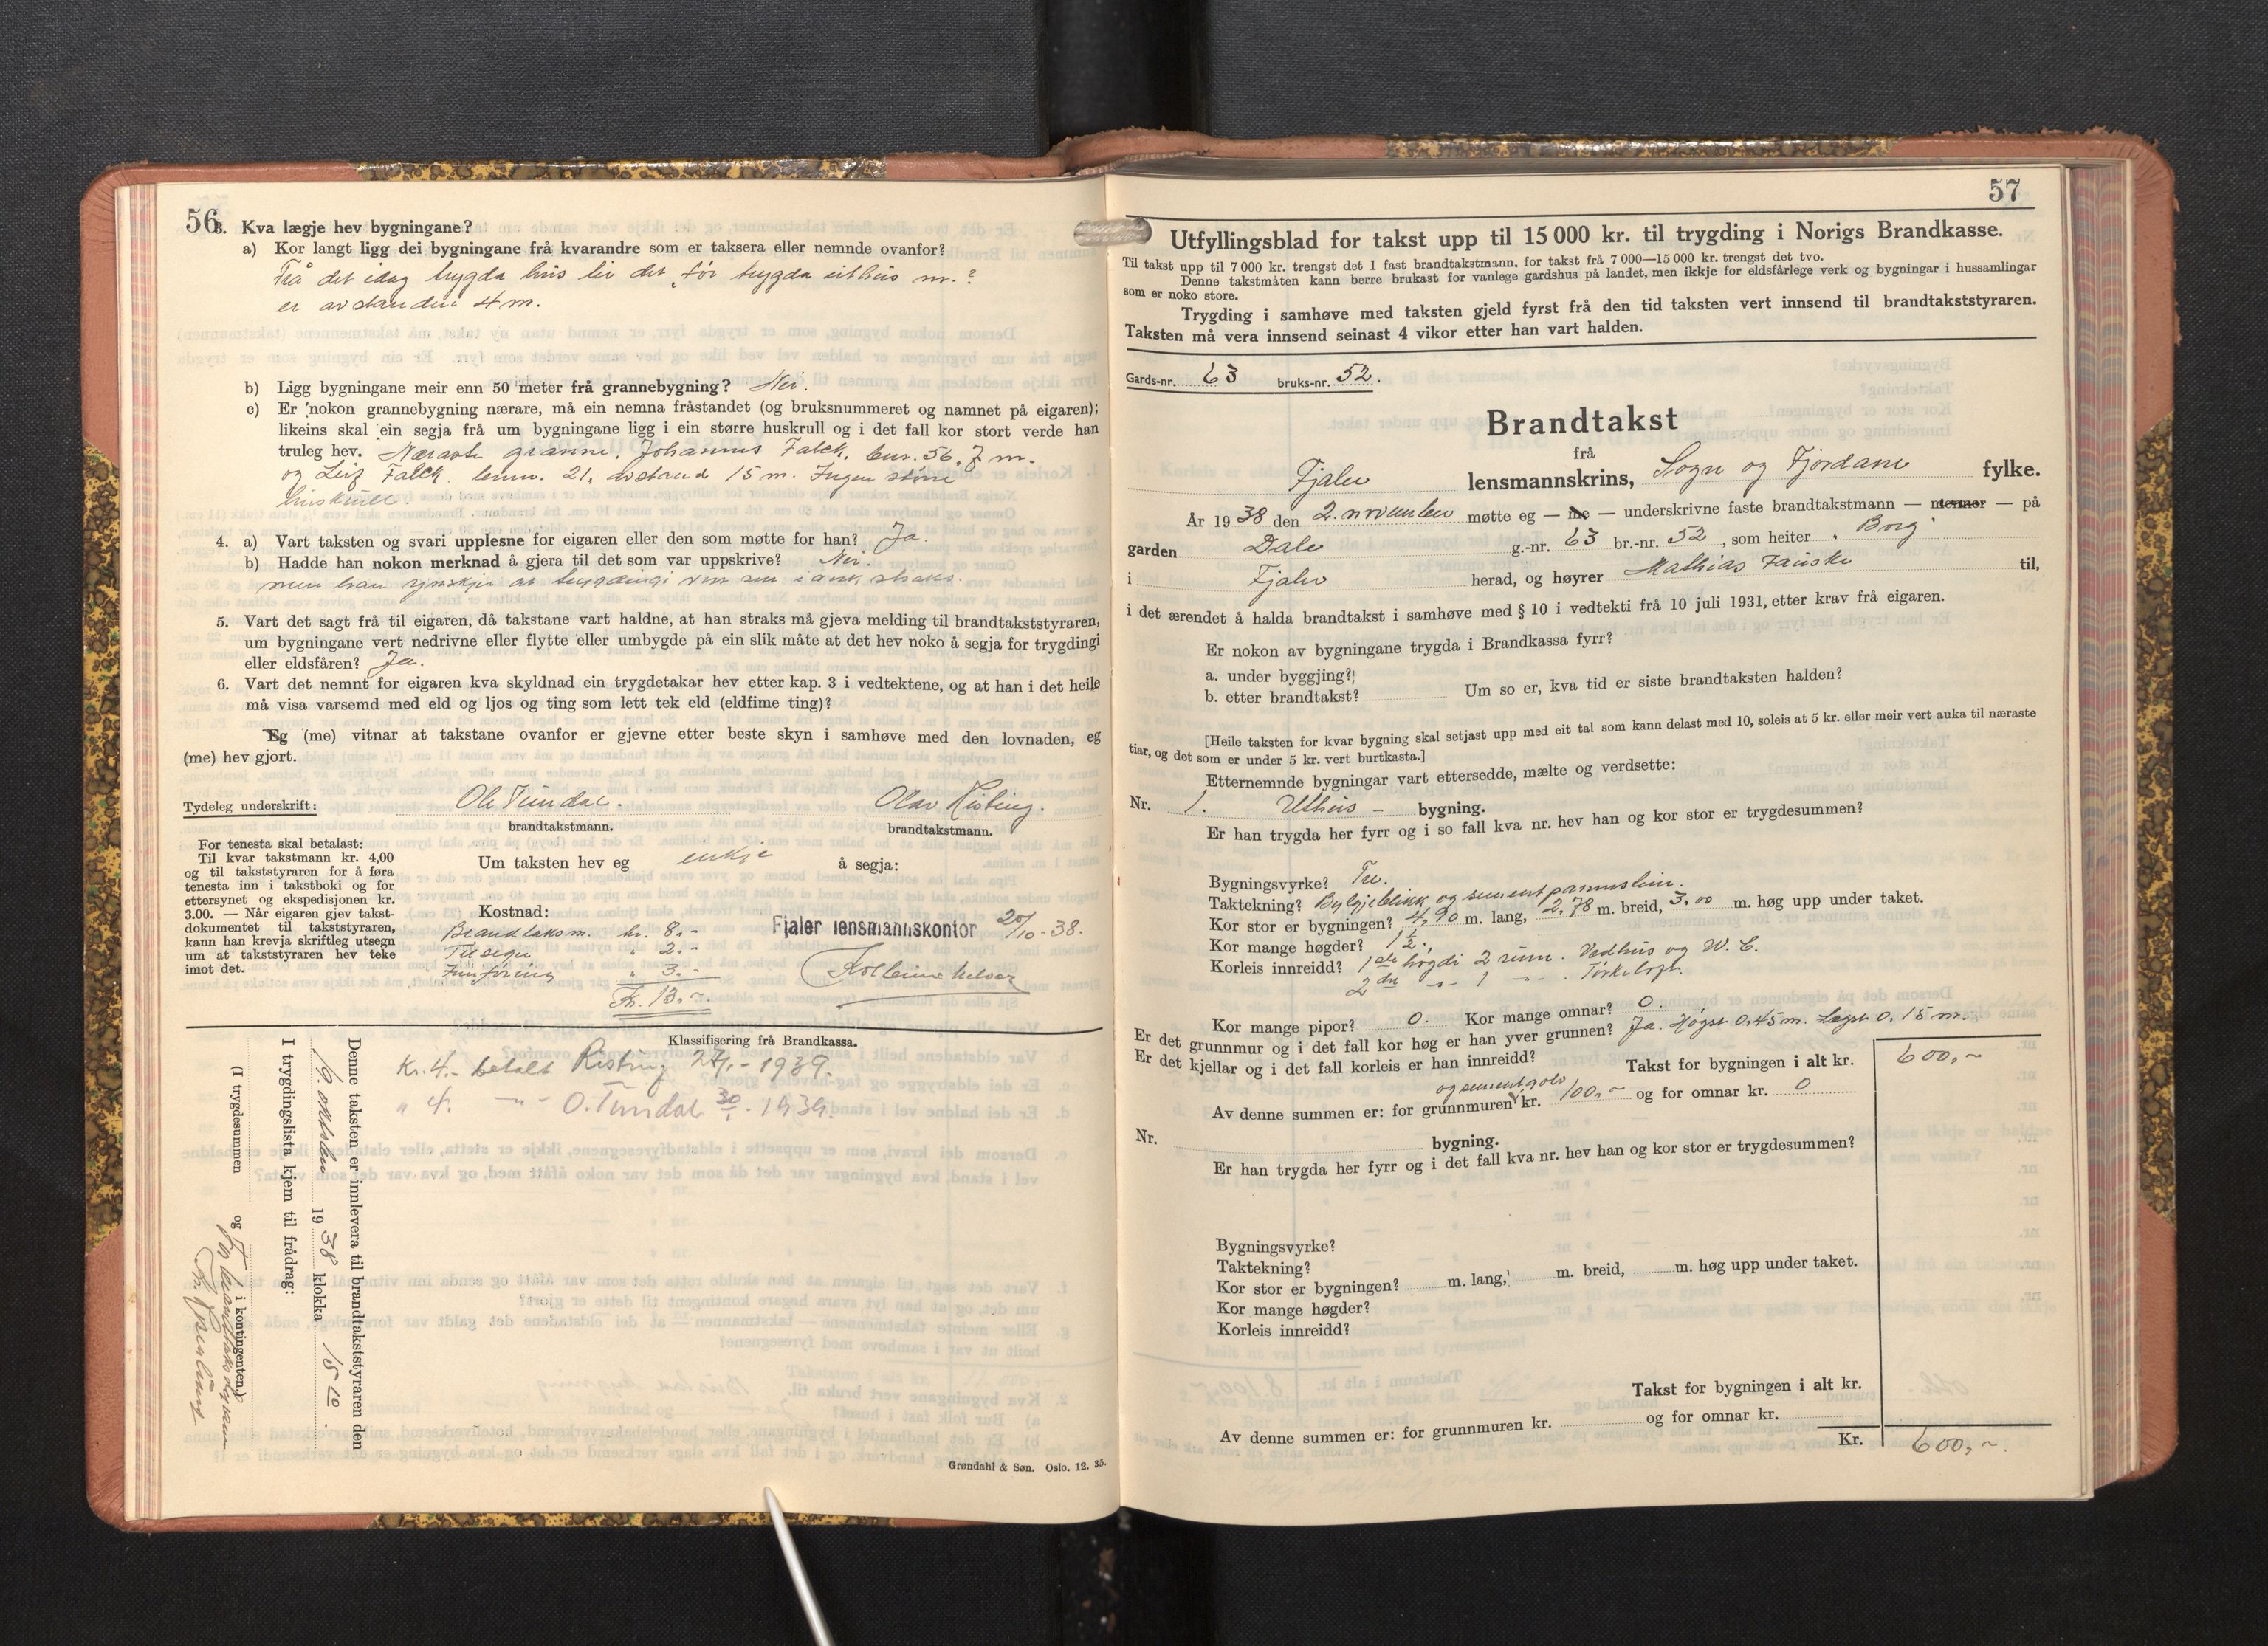 56
3. Kva lægje hev bygningane?
a) Kor langt ligg dei bygningane frå kvarandre som er taksera eller nemnde ovanfor?
Frå det idag bygda hus til det før bygda uithus m.?
er avstanden 4 m.
b) Ligg bygningane meir enn 50 meter frå grannebygning? Nei.
c) Er nokon grannebygning nærare, må ein nemna fråstandet (og bruksnummeret og namnet på eigaren);
likeins skal ein segja frå um bygningane ligg i ein større huskrull og i det fall kor stort verde han
truleg hev. Næraste granne, Johannes Falck, bnr. 56, 7 m.
og Leif Falck. bnm. 21, avstand 15 m. Ingen større
huskrull.
4. a) Vart taksten og svari upplesne for eigaren eller den som møtte for han? Ja.
b) Hadde han nokon merknad å gjera til det som var uppskrive? Nei.
men han ynskjer at trygdingi vert sett i straks.
5. Vart det sagt frå til eigaren, då takstane vart haldne, at han straks må gjeva melding til brandtakststyraren,
um bygningane vert nedrivne eller flytte eller umbygde på ein slik måte at det hev noko å segja for trygdingi
eller eldsfåren? Ja.
6. Vart det nemnt for eigaren kva skyldnad ein trygdetakar hev etter kap. 3 i vedtektene, og at han i det heile
må visa varsemd med eld og ljos og ting som lett tek eld (eldfime ting)?
Eg (me) vitnar at takstane ovanfor er gjevne etter beste skyn i samhøve med den lovnaden, eg
(me) hev gjort.
Tydeleg underskrift: Ole Tundal. Olav Risting.
brandtakstmann. brandtakstmann.
For tenesta skal betalast:
Til kvar takstmann kr. 4,00
og til takststyraren for å føra
tenesta inn i takstboki og for
ettersynet og ekspedisjonen kr.
3.00. — Når eigaren gjev takst-
dokumentet til takststyraren,
kann han krevja skriftleg utsegn
um at takststyraren hev teke
imot det.
Um taksten hev eg inkje å segja:
Kostnad:
Brandtaksm. kr. 8.-
Tilsegn " 2.-
Innføring " 3.-
Kr. 13.-
Fjaler lensmannskontor 20/10-38.
Klassifisering frå Brandkassa.
Kr. 4.- betalt Risting 27/1-1939.
" 4. -"- O. Tundal 30/1. 1939.
Denne taksten er innlevera til brandtakststyraren den
19. oktober 1938 klokka 15 10.
I trygdingslista kjem til frådrag:
(I trygdesummen og i kontingenten.)
Grøndahl & Søn. Oslo. 12. 35.
57
Utfyllingsblad for takst upp til 15 000 kr. til trygding i Norigs Brandkasse.
Til takst upp til 7 000 kr. trengst det 1 fast brandtakstmann, for takst frå 7 000—15 000 kr. trengst det tvo.
Denne takstmåten kann berre brukast for vanlege gardshus på landet, men ikkje for eldsfårlege verk og bygningar i hussamlingar
som er noko store.
Trygding i samhøve med taksten gjeld fyrst frå den tid taksten vert innsend til brandtakststyraren.
Taksten må vera innsend seinast 4 vikor etter han vart halden.
Gards-nr. 63 bruks-nr. 52.
Brandtakst
frå
Fjaler lensmannskrins, Sogn og Fjordane fylke.
År 1938 den 2. november møtte eg — me — underskrivne faste brandtakstmann — menner — på
garden Dale g.-nr. 63 br.-nr. 52, som heiter "Borg"
i Fjaler herad, og høyrer Mathias Fauske til,
i det ærendet å halda brandtakst i samhøve med § 10 i vedtekti frå 10 juli 1931, etter krav frå eigaren.
Er nokon av bygningane trygda i Brandkassa fyrr?
a. under byggjing?
b. etter brandtakst? Um so er, kva tid er siste brandtaksten halden?
[Heile taksten for kvar bygning skal setjast upp med eit tal som kann delast med 10, soleis at 5 kr. eller meir vert auka til næraste
tiar, og det som er under 5 kr. vert burtkasta.]
Etternemnde bygningar vart ettersedde, mælte og verdsette:
Nr. 1. Uthus - bygning.
Er han trygda her fyrr og i so fall kva nr. hev han og kor stor er trygdesummen?
Bygningsvyrke? Tre.
Taktekning? Bylgjeblikk og sementpannustein.
Kor stor er bygningen? 4,90 m. lang, 2,78 m. breid, 3,00 m. høg upp under taket.
Kor mange høgder? 1 1/2.
Korleis innreidd? 1ste høgdi 2 rum. Vedhus og W. C.
2dre -"- 1 -"- Tørkeloft.
Kor mange pipor? 0. Kor mange omnar? 0.
Er det grunnmur og i det fall kor høg er han yver grunnen? Ja. Høgst 0,45 m. Lægst 0,15 m.
Er det kjellar og i det fall korleis er han innreidd?
Takst for bygningen i alt kr. 600,-
og sementgolv
Av denne summen er: for grunnmuren kr. 100,- og for omnar kr. 0
Nr. bygning.
Er han trygda her fyrr og i det fall kva nr. hev han og kor stor er trygdesummen?
Bygningsvyrke?
Taktekning?
Kor stor er bygningen? m. lang, m. breid, m. høg upp under taket.
Kor mange høgder?
Korleis innreidd?
Takst for bygningen i alt kr.
Av denne summen er: for grunnmuren kr. og for omnar kr.
Kr. 600,-.